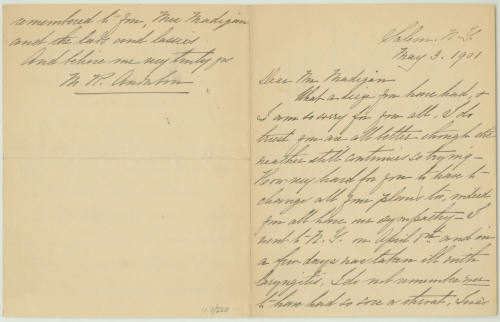 remembered to you, Mrs Madigan
and the lads and lassies.
And believe me very truly yrs
M. R. Audubon
Salem. N. Y.
May 3. 1901
Dear Mr. Madigan
What a siege you have had, &
I am so sorry for you all. I do
trust you are all better though the
weather still continues so trying –
How very hard for you to have to
change all your plans too, indeed
you all have my sympathy – I
went to N. Y. on April 8th and in
a few days was taken ill with
laryngitis. I do not remember ever
to have had so sore a throat,